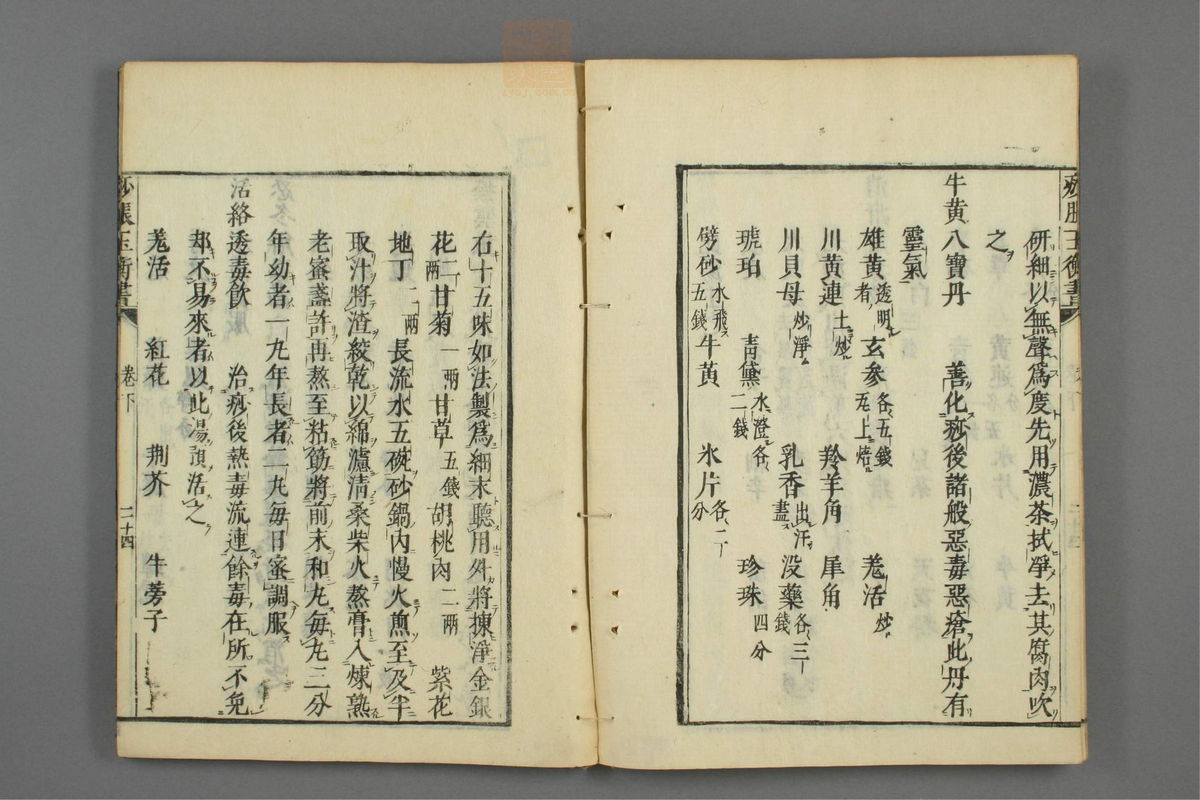 痧脹玉衡書
研細以無聲爲度先用濃茶拭凈去其腐肉吹
之
牛黃八寶丹　善化痧後諸般惡毒惡瘡此丹有
靈氣
雄黃 透明者 玄參 各五錢 瓦上焙 羗活 炒
川黃連 土炒 羚羊角 犀角
川貝母 炒淨 乳香 出汗盡 没藥 各三錢
琥珀 青黛 水澄各二錢 珍珠 四分
劈砂 水飛五錢 牛黃 氷片 各二分
右十五味如法製爲細末聽用外將揀淨金銀
花二兩 甘菊 一兩 甘草 五錢 胡桃肉 二兩 紫花
地丁 二兩 長流水五碗砂鍋內慢火煎至及半
取汁將渣絞乾以綿濾清桑柴火熬膏入煉熟
老蜜盞許再熬至粘筯將前末和丸每丸三分
年幼者一丸年長者二丸每日蜜調服
活絡透毒飲　治痧後熱毒流連餘毒在所不免
却不易來者以此湯預活之
羗活 紅花 荆芥 牛蒡子
痧脹玉衡書 卷下 二十四